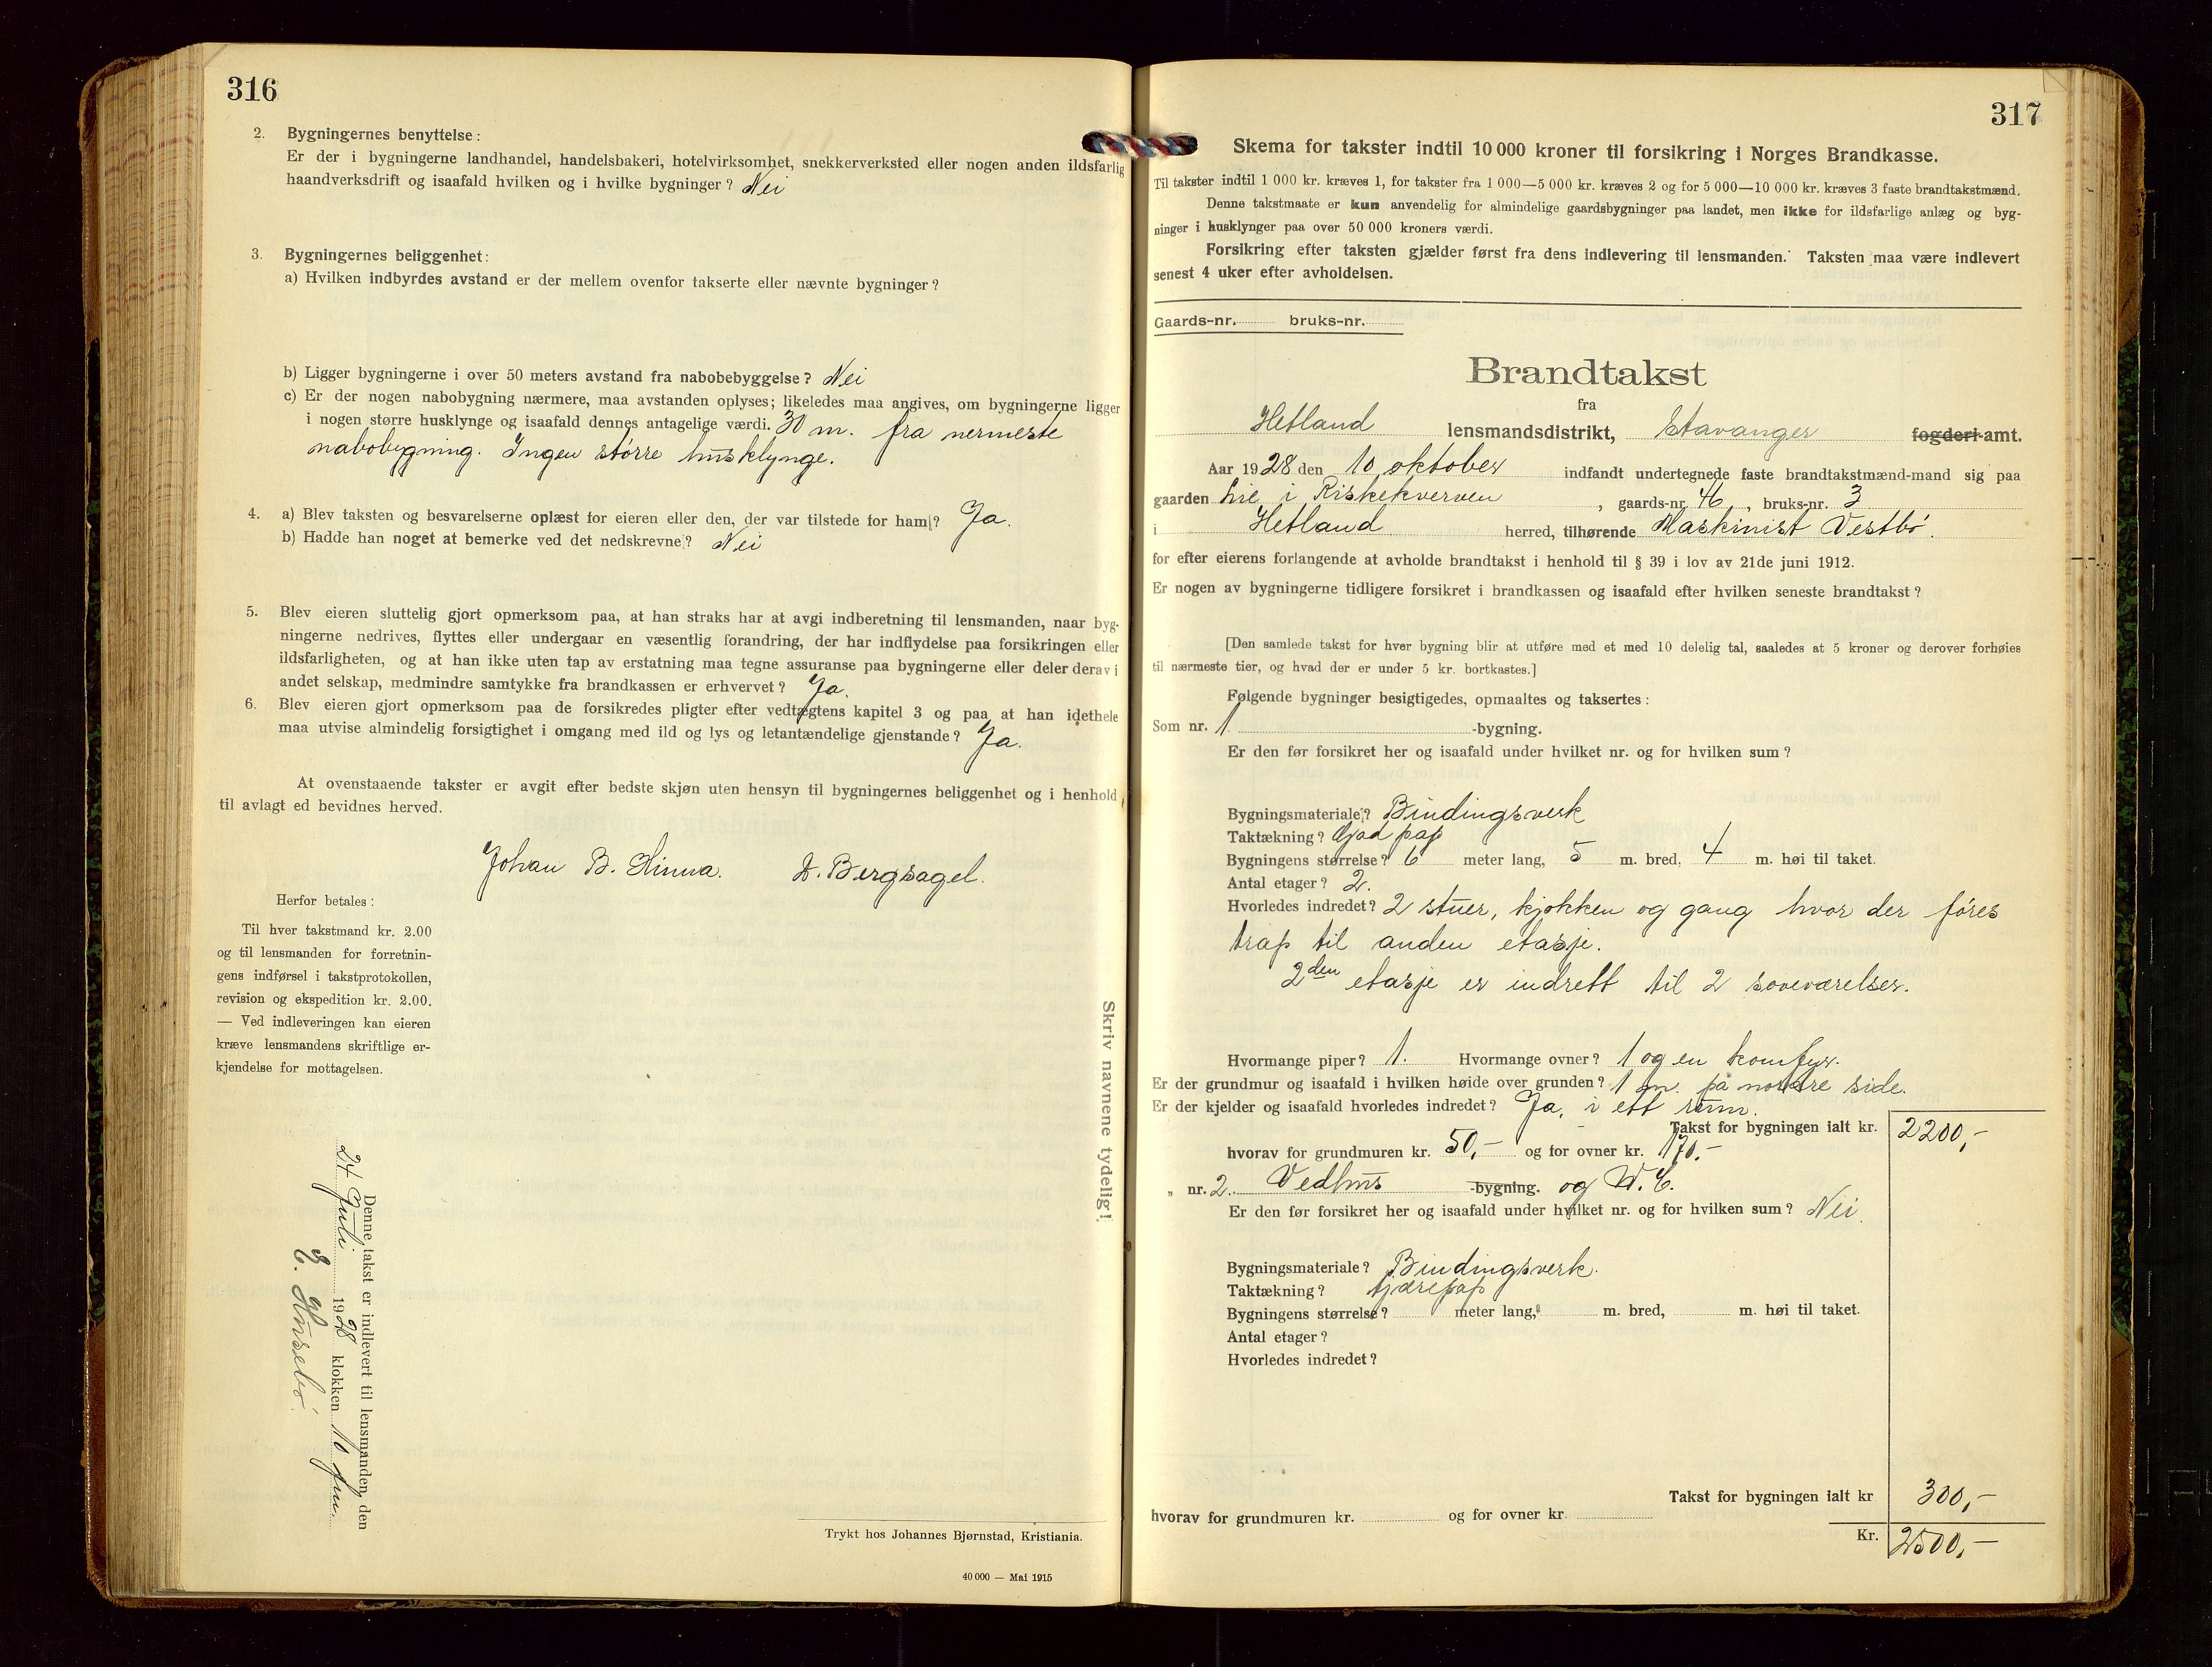 316
2. Bygningernes benyttelse:
Er der i bygningerne landhandel, handelsbakeri, hotelvirksomhet, snekkerverksted eller nogen anden ildsfarlig
haandverksdrift og isaafald hvilken og i hvilke bygninger? Nei
3. Bygningernes beliggenhet:
a) Hvilken indbyrdes avstand er der mellem ovenfor takserte eller nævnte bygninger?
b) Ligger bygningerne i over 50 meters avstand fra nabobebyggelse? Nei
c) Er der nogen nabobygning nærmere, maa avstanden oplyses; likeledes maa angives, om bygningerne ligger
i nogen større husklynge og isaafald dennes antagelige værdi. 30 m. fra nermeste
nabobygning. Ingen større husklynge.
4. a) Blev taksten og besvarelserne oplæst for eieren eller den, der var tilstede for ham? Ja.
b) Hadde han noget at bemerke ved det nedskrevne? Nei
5. Blev eieren sluttelig gjort opmerksom paa, at han straks har at avgi indberetning til lensmanden, naar byg-
ningerne nedrives, flyttes eller undergaar en væsentlig forandring, der har indflydelse paa forsikringen eller
ildsfarligheten, og at han ikke uten tap av erstatning maa tegne assuranse paa bygningerne eller deler derav i
andet selskap, medmindre samtykke fra brandkassen er erhvervet? Ja.
6. Blev eieren gjort opmerksom paa de forsikredes pligter efter vedtægtens kapitel 3 og paa at han idethele
maa utvise almindelig forsigtighet i omgang med ild og lys og letantændelige gjenstande? Ja.
At ovenstaaende takster er avgit efter bedste skjøn uten hensyn til bygningernes beliggenhet og i henhold
til avlagt ed bevidnes herved.
Johan B. Hinna. D. Bergsagel.
Herfor betales:
Til hver takstmand kr. 2.00
og til lensmanden for forretnin-
gens indførsel i takstprotokollen,
revision og ekspedition kr. 2.00.
— Ved indleveringen kan eieren
kræve lensmandens skriftlige er-
kjendelse for mottagelsen.
Skriv navnene tydelig!
Denne takst er indlevert til lensmanden, den
24 Juli 1928 klokken 10 fm.
E. Husebø.
Trykt hos Johannes Bjørnstad, Kristiania.
40 000 — Mai 1915
317
Skema for takster indtil 10 000 kroner til forsikring i Norges Brandkasse.
Til takster indtil 1 000 kr. kræves 1, for takster fra 1 000—5 000 kr. kræves 2 og for 5 000—10 000 kr. kræves 3 faste brandtakstmænd.
Denne takstmaate er kun anvendelig for almindelige gaardsbygninger paa landet, men ikke for ildsfarlige anlæg og byg-
ninger i husklynger paa over 50 000 kroners værdi.
Forsikring efter taksten gjælder først fra dens indlevering til lensmanden. Taksten maa være indlevert
senest 4 uker efter avholdelsen.
Gaards-nr. bruks-nr.
Brandtakst
fra
Hetland lensmandsdistrikt, Stavanger fogderi-amt.
Aar 1928 den 10 oktober indfandt undertegnede faste brandtakstmænd-mand sig paa
gaarden Lie i Riskekverven, gaards-nr. 46, bruks-nr. 3
i Hetland herred, tilhørende Maskinist Vestbø.
for efter eierens forlangende at avholde brandtakst i henhold til § 39 i lov av 21de juni 1912.
Er nogen av bygningerne tidligere forsikret i brandkassen og isaafald efter hvilken seneste brandtakst?
[Den samlede takst for hver bygning blir at utføre med et med 10 delelig tal, saaledes at 5 kroner og derover forhøies
til nærmeste tier, og hvad der er under 5 kr. bortkastes.]
Følgende bygninger besigtigedes, opmaaltes og taksertes:
Som nr. 1 -bygning.
Er den før forsikret her og isaafald under hvilket nr. og for hvilken sum?
Bygningsmateriale? Bindingsverk
Taktækning? pap
Bygningens størrelse? 6 meter lang, 5 m. bred, 4 m. høi til taket.
Antal etager? 2.
Hvorledes indredet? 2 stuer, kjøkken og gang hvor der føres
trap til anden etasje.
2den etasje er indrett til 2 soveværelser.
Hvormange piper? 1. Hvormange ovner? 1 og en komfyr.
Er der grundmur og isaafald i hvilken høide over grunden? 1 m. på nordre side.
Er der kjelder og isaafald hvorledes indredet? Ja, i ett rum.
Takst for bygningen ialt kr. 2200,-
hvorav for grundmuren kr. 50,- og for ovner kr. 170.-
„ nr. 2. Vedhus -bygning. og W. C.
Er den før forsikret her og isaafald under hvilket nr. og for hvilken sum? Nei
Bygningsmateriale? Bindingsverk.
Taktækning? tjærepap
Bygningens størrelse? meter lang, m. bred, m. høi til taket.
Antal etager?
Hvorledes indredet?
Takst for bygningen ialt kr 300,-
hvorav for grundmuren kr. og for ovner kr.
Kr. 2500,-